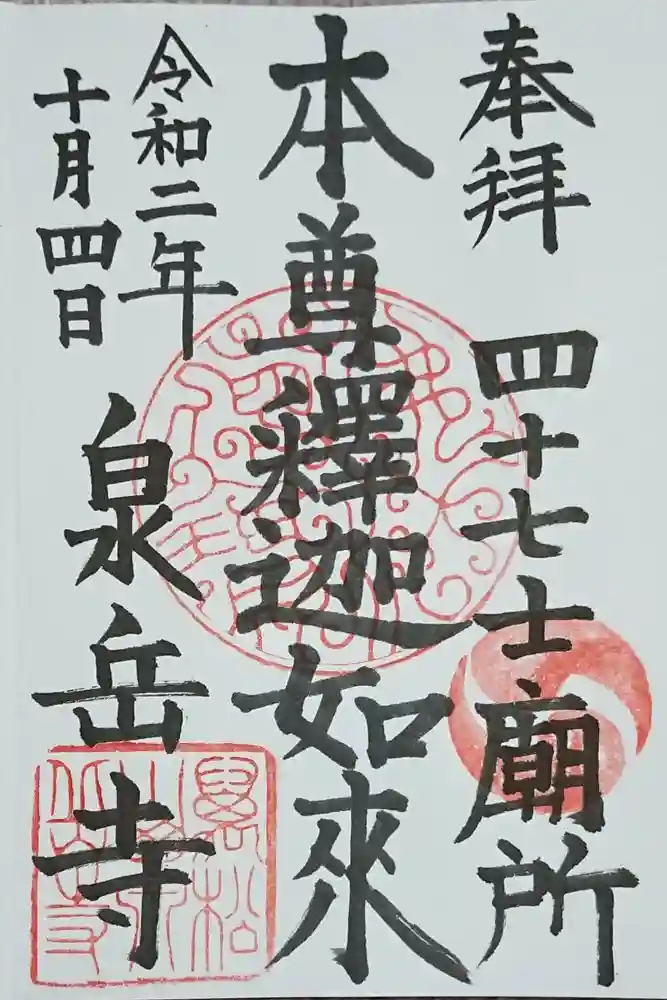 奉拝
四十七士廟所
本尊釋迦如來
令和二年
十月四日
泉岳寺